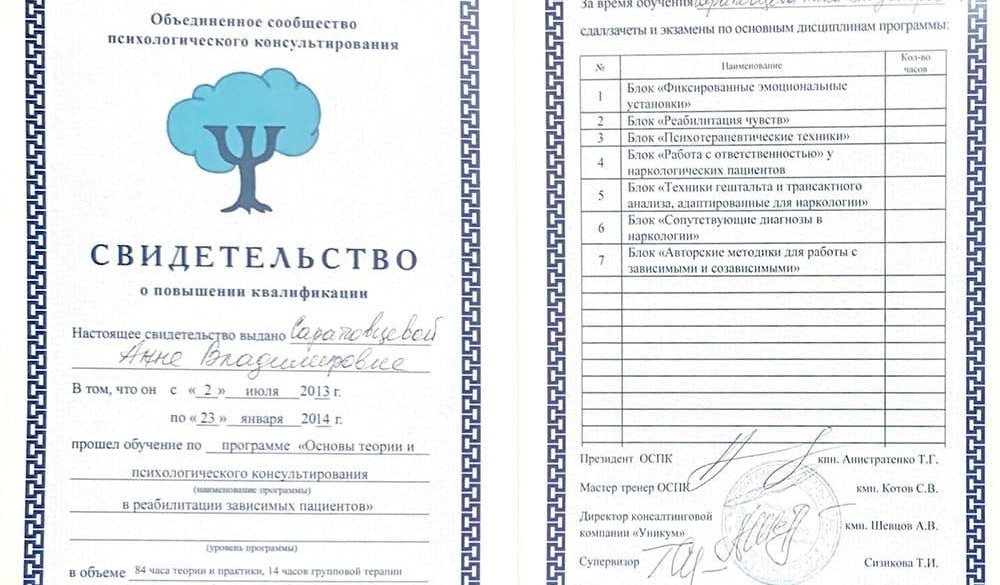 Объединенное сообщество
психологического консультирования
СВИДЕТЕЛЬСТВО
о повышении квалификации
Настоящее свидетельство выдано Саратовцевой
Анне Владимировне
В том, что он с «2» июля 2013 г.
по «23» января 2014 г.
прошел обучение по программе «Основы теории и
психологического консультирования
(наименование программы)
в реабилитации зависимых пациентов»
(уровень программы)
в объеме 84 часа теории и практики, 14 часов групповой терапии
За время обучения
сдал/зачеты и экзамены по основным дисциплинам программы:
№ Наименование Кол-во
часов
1 Блок «Фиксированные эмоциональные
установки»
2 Блок «Реабилитация чувств»
3 Блок «Психотерапевтические техники»
4 Блок «Работа с ответственностью» у
наркологических пациентов
5 Блок «Техники гештальта и трансактного
анализа, адаптированные для наркологии»
6 Блок «Сопутствующие диагнозы в
наркологии»
7 Блок «Авторские методики для работы с
зависимыми и созависимыми»
Президент ОСПК кпн. Анистратенко Т.Г.
Мастер тренер ОСПК кмн. Котов С.В.
Директор консалтинговой
компании «Уникум» кмн. Шевцов А.В.
Супервизор Сизикова Т.И.